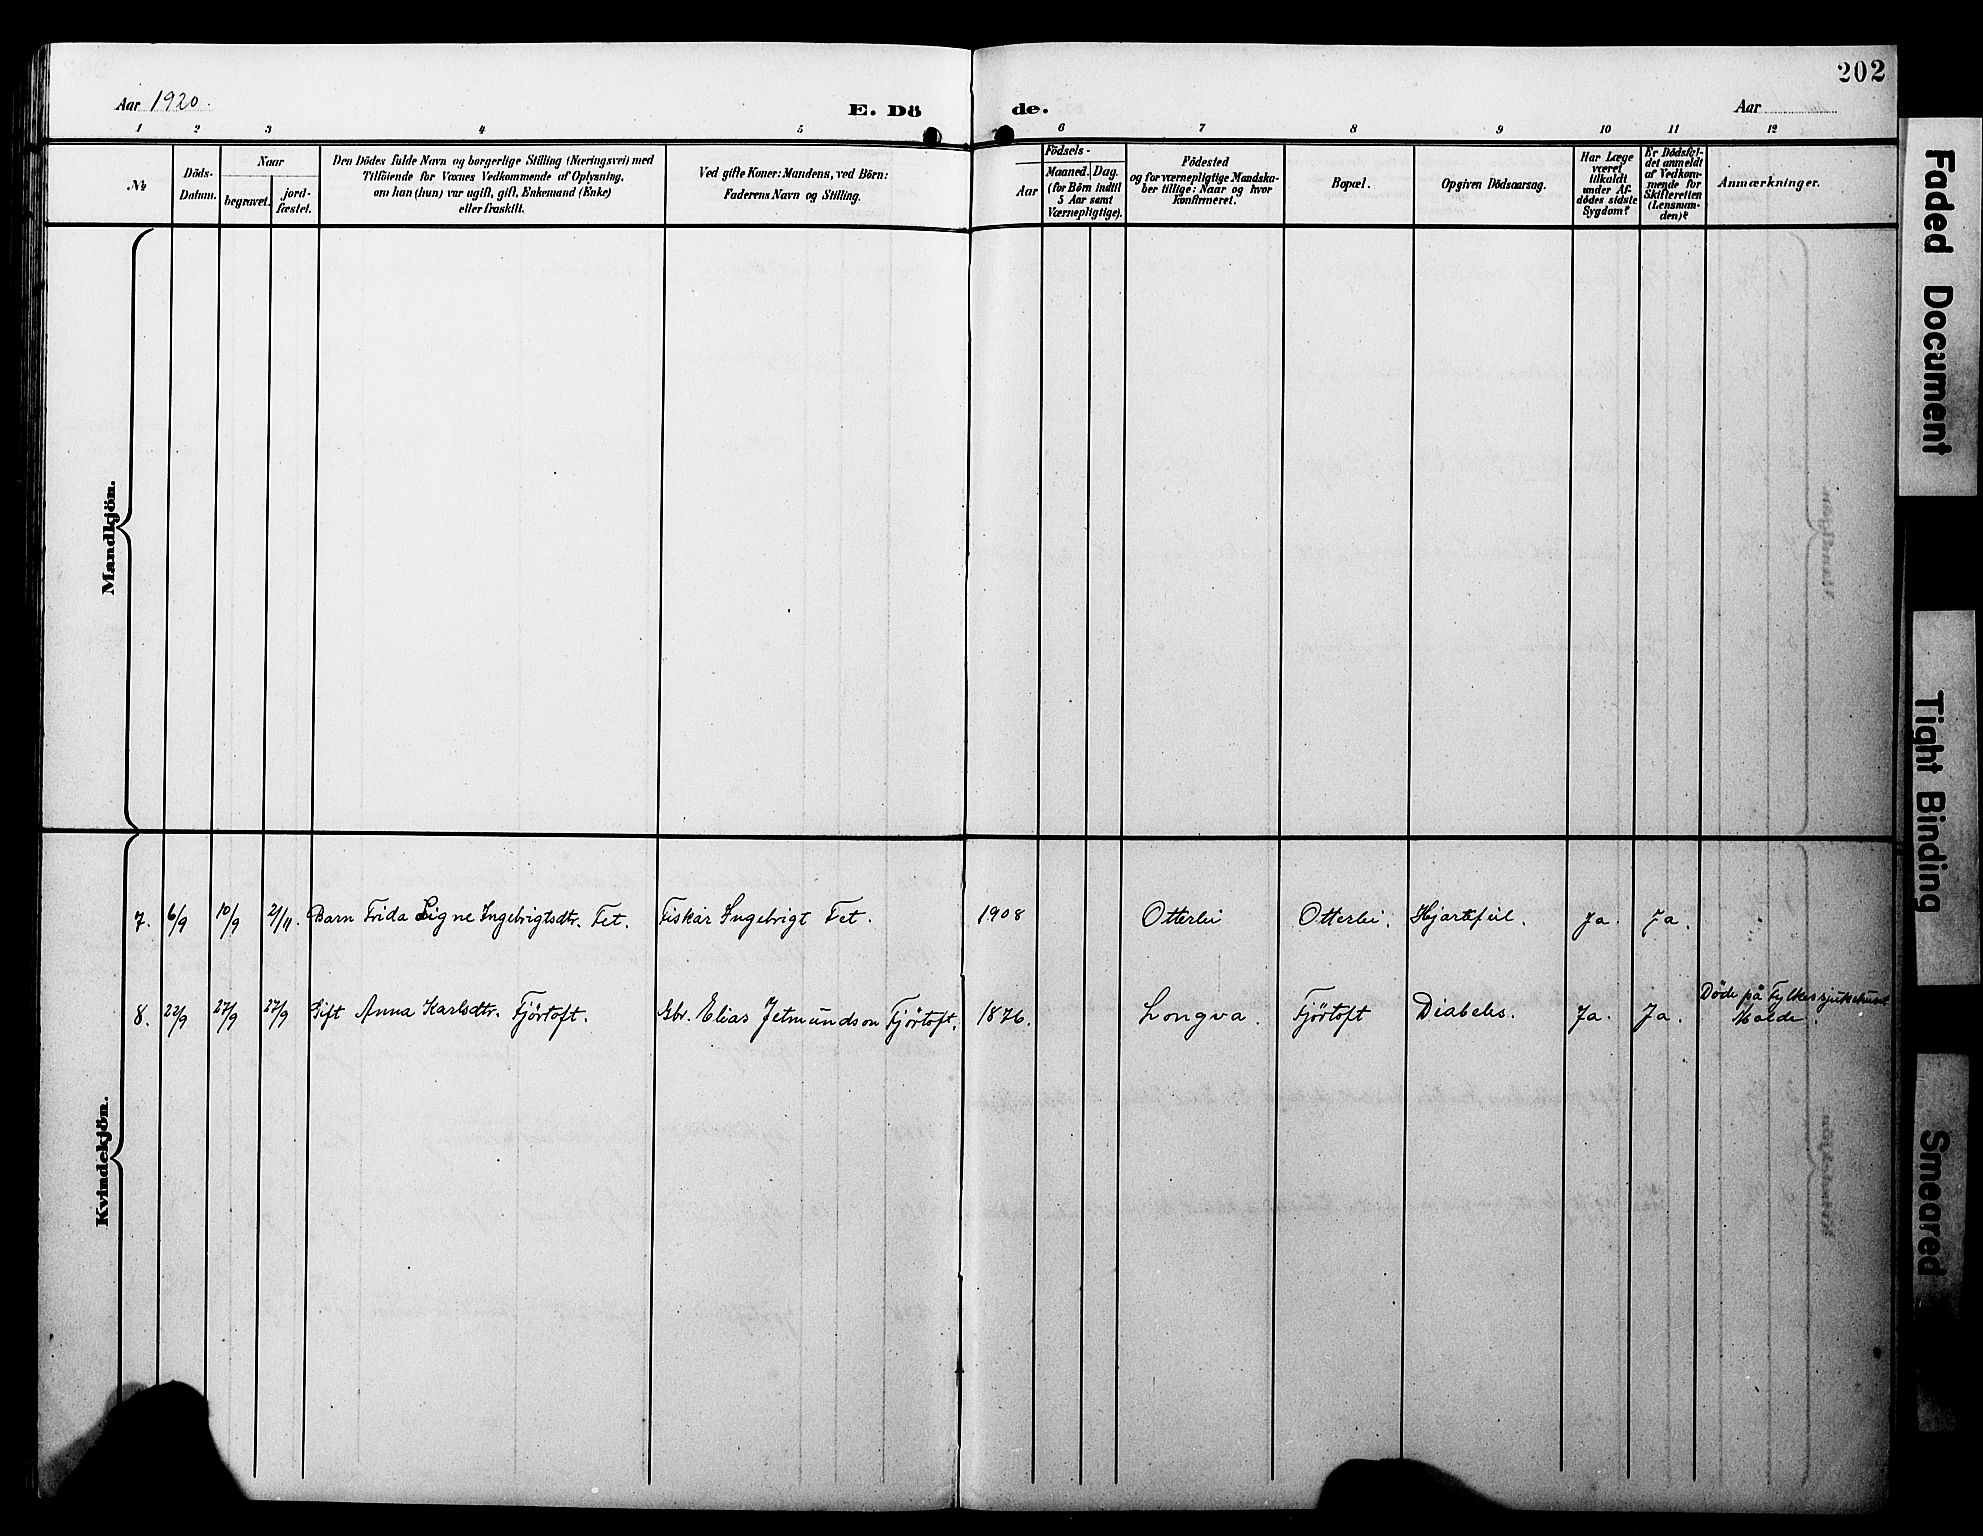 202
Aar 1920.
E. Dö de.
Aar
1 2 3 4 5 6 7 8 9 10 11 12
No
Döds-
Datum.
Naar
begravet.
jord-
fæstet.
Den Dödes fulde Navn og borgerlige Stilling (Næringsvei) med
Tilföiende for Voxnes Vedkommende af Oplysning,
om han (hun) var ugift, gift, Enkemand (Enke)
eller fraskilt.
Ved gifte Koner: Mandens, ved Börn:
Faderens Navn og Stilling.
Födsels-
Aar
Maaned. Dag.
(for Börn indtil
5 Aar samt
Værnepligtige).
Födested
og for værnepligtige Mandska-
ber tillige: Naar og hvor
konfirmeret.
Bopæl.
Opgiven Dödsaarsag.
Har Læge
været
tilkaldt
under Af-
dödes sidste
Sygdom?
Er Dödsfal-
det anmeldt
af Vedkom-
mende for
Skifteretten
(Lensman-
den)?
Anmærkninger.
Mandkjön.
Kvindekjön.
7. 6/9 10/9 2/11 Barn Frida Signe Ingebrigtsdtr. Fet. Fiskar Ingebrigt Fet. 1908 Otterlei Otterlei. Hjartefeil. Ja. Ja.
8. 22/9 27/9 27/9 Gift Anna Karlsdtr. Fjörtoft. Gbr. Elias Jetmundson Fjörtoft. 1876. Longva. Fjörtoft Diabetes. Ja. Ja. Döde på Fylkessjukehuset
Molde.
Faded Document
Tight Binding
Smeared